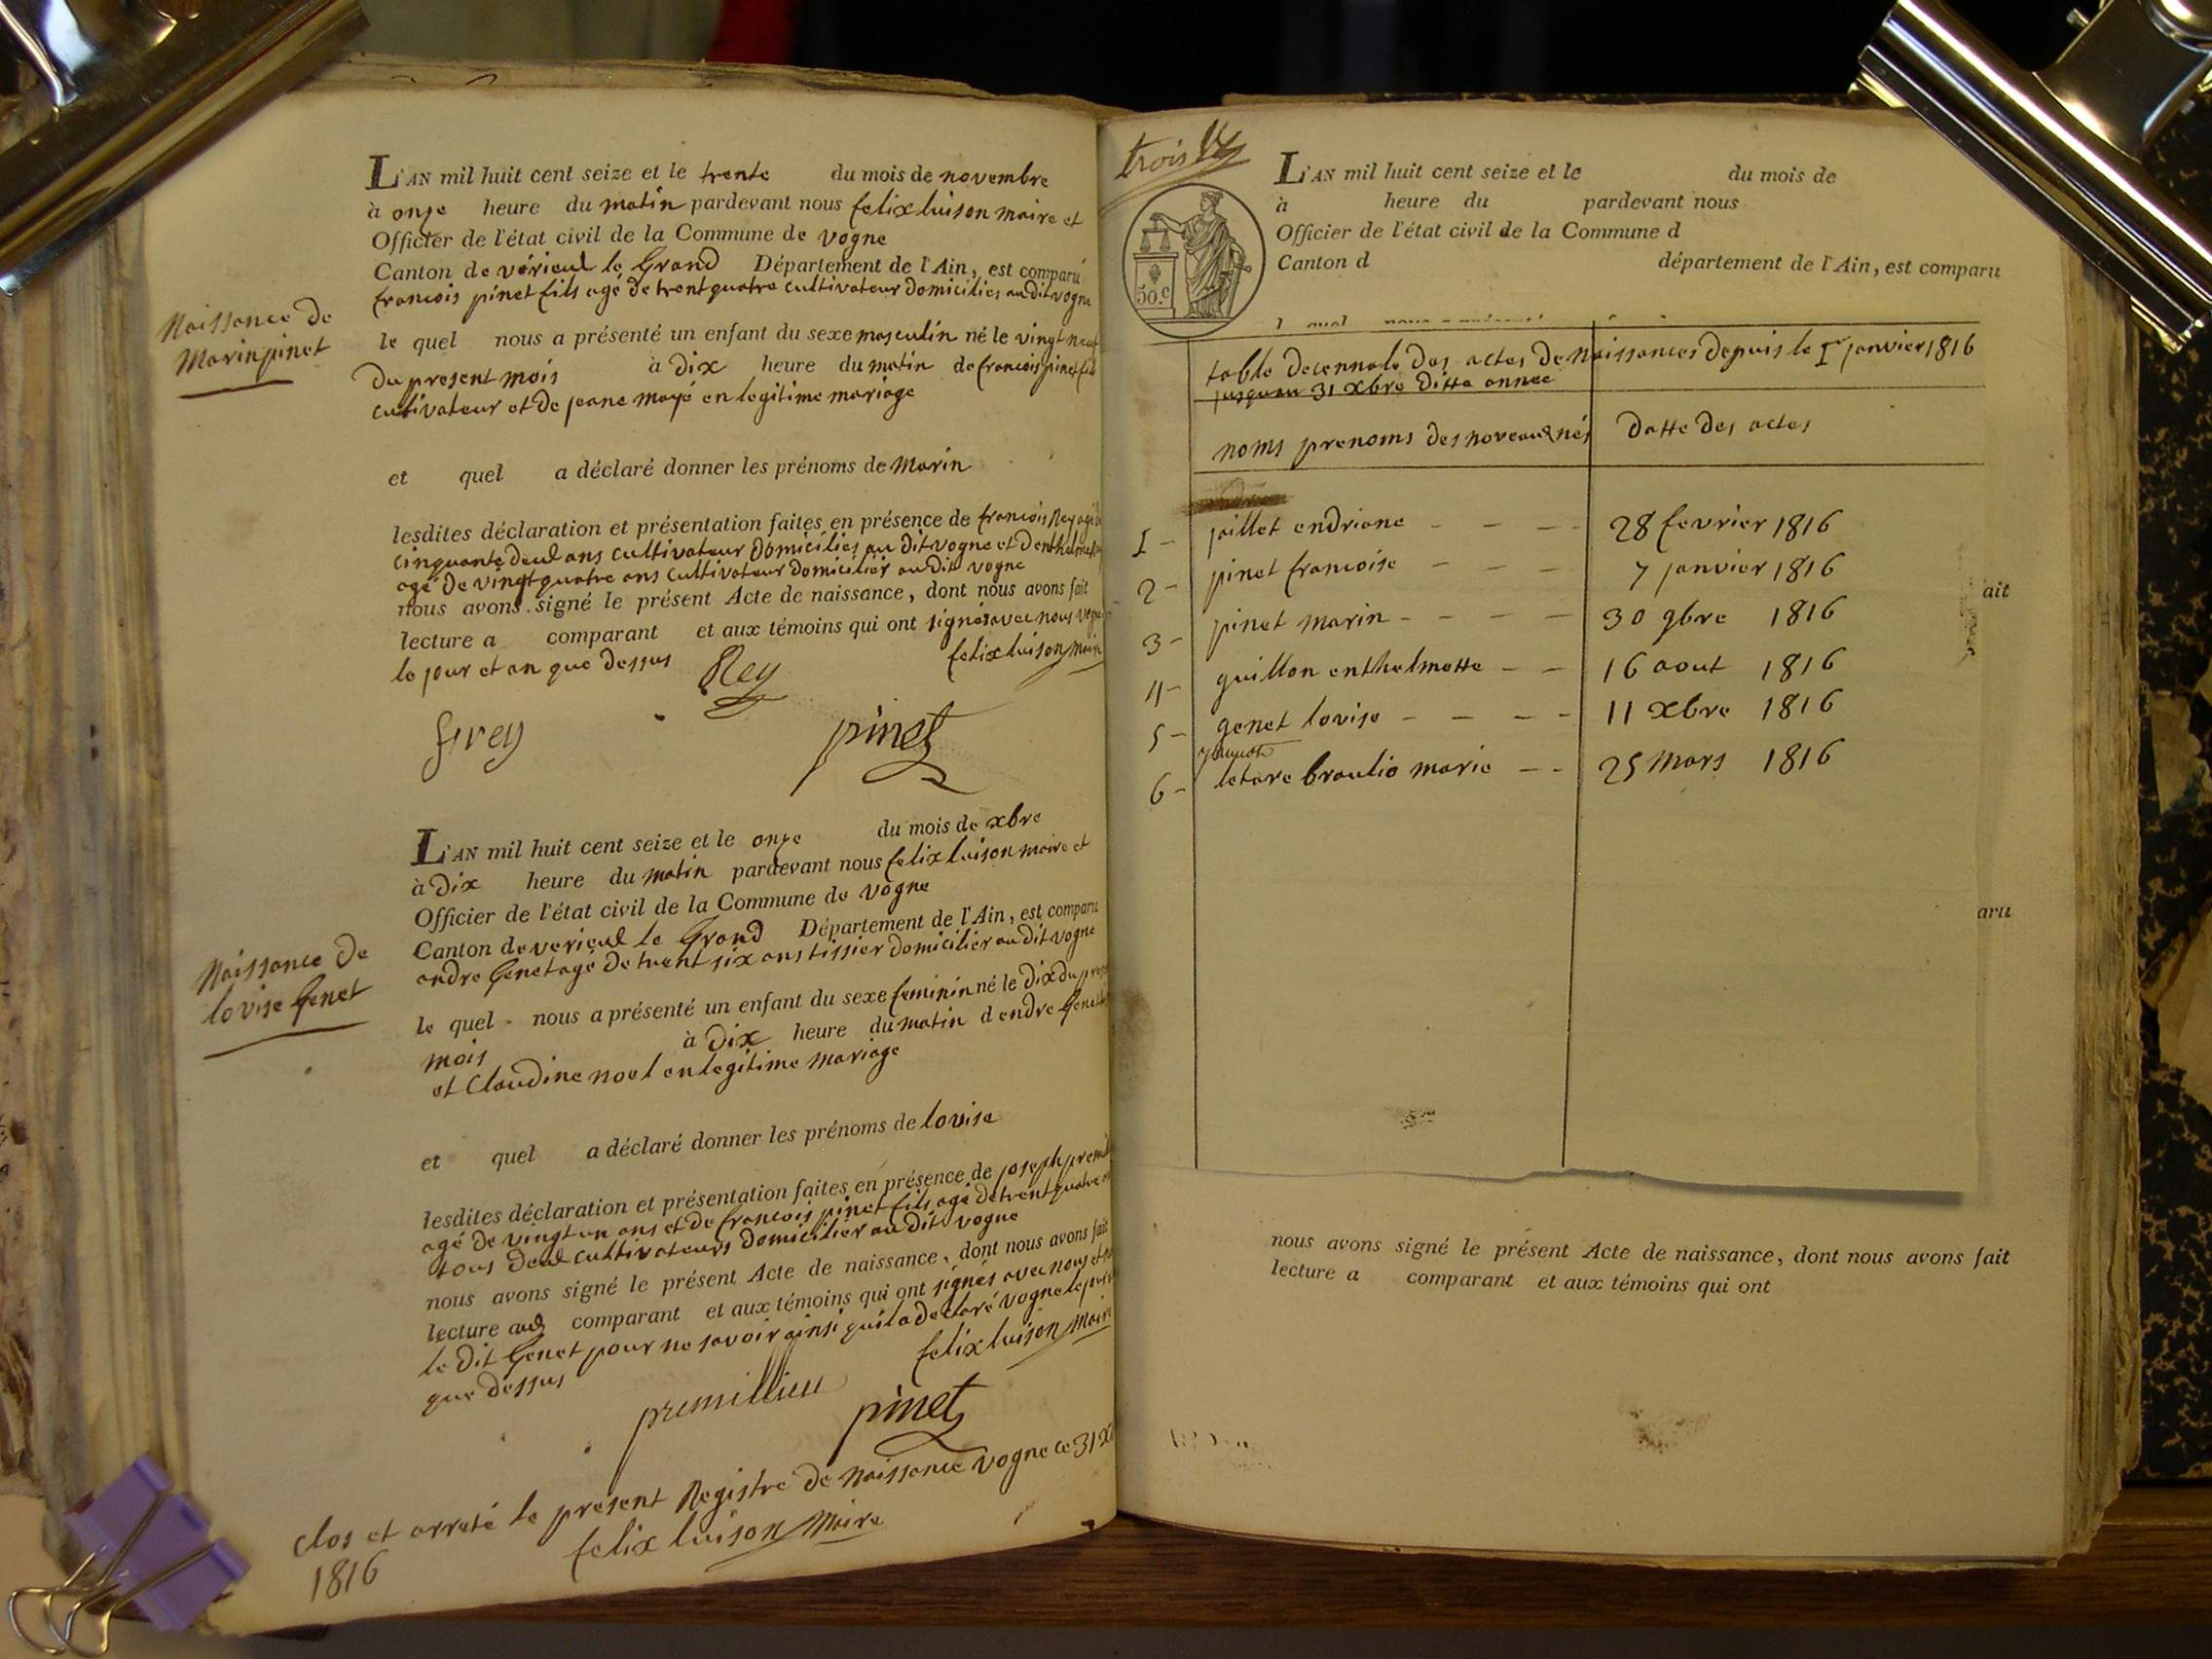 Naissance de
Marin pinet
L'AN mil huit cent seize et le trente du mois de novembre
à onze heure du matin pardevant nous felix luison maire et
Officier de l'état civil de la Commune de vogne
Canton de virieul le Grand Département de l'Ain, est comparu
francois pinet fils agé de trent quatre cultivateur domiciliés au dit vogne
le quel nous a présenté un enfant du sexe masculin né le vingt neuf
du present mois à dix heure du matin de francois pinet fils
cultivateur et de jeane mayé en legitime mariage
et quel a déclaré donner les prénoms de Marin
lesdites déclaration et présentation faites en présence de francois Rey agé
cinquante deul ans cultivateur domiciliés au dit vogne et
agé de vingt quatre ans cultivateur domicilier au dit vogne
nous avons signé le présent Acte de naissance, dont nous avons fait
lecture a comparant et aux témoins qui ont signés avec nous
le jour et an que dessus Rey felix luison maire
pinet
Naissance de
lovise Genet
L'AN mil huit cent seize et le onze du mois de xbre
à Dix heure du matin pardevant nous felix luison maire et
Officier de l'état civil de la Commune de vogne
Canton de virieul le Grand Département de l'Ain, est comparu
andre Genet agé de trent six ans tissier domicilier au dit vogne
le quel nous a présenté un enfant du sexe feminin né le dix du
mois à Dix heure du matin d endre Genet
et Claudine noel en legitime mariage
et quel a déclaré donner les prénoms de lovise
lesdites déclaration et présentation faites en présence de joseph
agé de vingt un ans et de francois pinet fils agé de trent quatre
tous deul cultivateurs domicilier au dit vogne
nous avons signé le présent Acte de naissance, dont nous avons fait
lecture aud comparant et aux témoins qui ont signés avec nous et
le dit Genet pour ne savoir ainsi quil a declaré vogne le jour
que dessus felix luison maire
premillieu
pinet
Clos et arreté le présent Registre de Naissance vogne ce 31
1816 felix luison Maire
trois
50.c
L'AN mil huit cent seize et le du mois de
à heure du pardevant nous
Officier de l'état civil de la Commune d
Canton d département de l'Ain, est comparu
table decennale des actes de Naissances depuis le 1er janvier 1816
jusquau 31 xbre ditte annee
noms prenoms des noveaux nés datte des actes
1 - juillet endriane - - - - 28 fevrier 1816
2 - pinet francoise - - - 7 janvier 1816
3 - pinet marin - - - - 30 9bre 1816
4 - guillon enthelmette - - 16 aout 1816
5 - genet lovise - - - - 11 xbre 1816
6 - letare braulio marie - - 25 Mars 1816
ait
aru
nous avons signé le présent Acte de naissance, dont nous avons fait
lecture a comparant et aux témoins qui ont